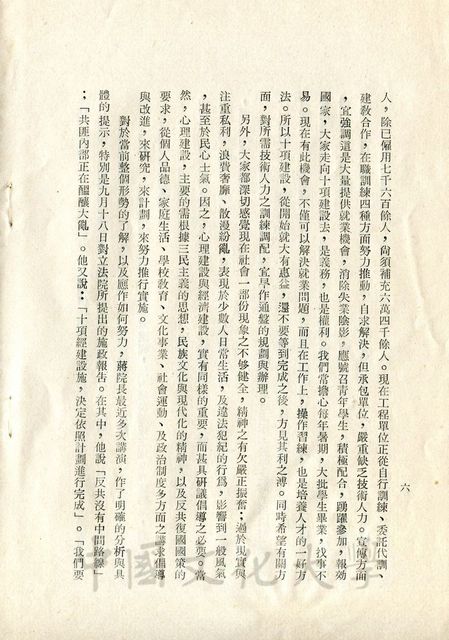 人，除已僱用七千六百餘人，尚須補充六萬四千餘人。現在工程單位正從自行訓練、委託代訓、
建教合作，在職訓練四種方面努力推動，自求解決，但承包單位，嚴重缺乏技術人力。宣傳方面
，宜強調這是大量提供就業機會，消除失業陰影，應號召青年學生，積極配合，踴躍參加，報効
國家，大家走向十項建設去，是義務，也是權利。我們常擔心每年暑期，大批學生畢業，找事不
易。現在有此機會，不僅可以解決就業問題，而且在工作上，操作習練，也是培養人才的一好方
法。所以十項建設，從開始就大有惠益，還不要等到完成之後，方見其利之溥。同時希望有關方
面，對所需技術人力之訓練調配，宜早作通盤的規劃與辦理。
另外，大家都深切感覺現在社會一部份現象之不够健全，精神之有欠嚴正振奮；過於現實與
注重私利，浪費奢靡、散漫紛亂，表現於少數人日常生活，及違法犯紀的行爲，影響到一般風氣
，甚至於民心士氣。因之，心理建設與經濟建設，實有同樣的重要，而甚具研議倡導之必要。當
然，心理建設，主要的需根據三民主義的思想，民族文化與現代化的精神，以及反共復國國策的
要求，從個人品德、家庭生活、學校教育、文化事業、社會運動、及政治制度多方面之講求倡導
與改進，來研究，來計劃，來努力推行實施。
對於當前整個形勢的了解，以及應作如何努力，蔣院長最近多次講演，作了明確的分析與具
體的提示，特別是九月十八日對立法院所提出的施政報告。在其中，他說「反共沒有中間路線」
：「共匪內部正在醞釀大亂」。他又說：「十項經建設施，決定依照計劃進行完成」。「我們要
六
中國文化大學